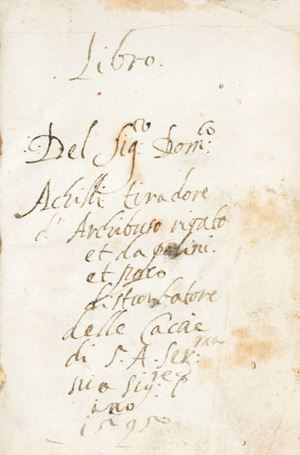 Libro.
Del Sig.ro Dom.co
Achilli tiradore
d'Archibuso rigato
et da palini.
et poco
disturbatore
delle Cacie
di S. A. Ser.ma
suo Sig.re
ano